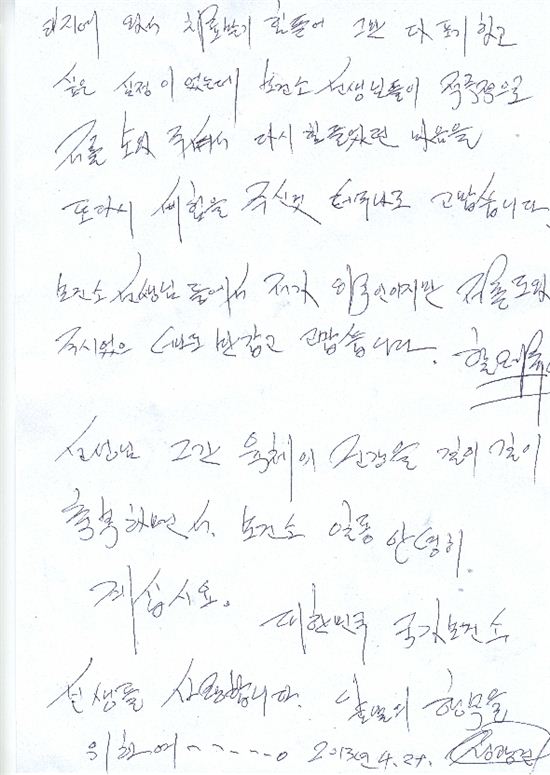 타지에 와서 치료받기 힘들어 그만 다 포기하고
싶은 심정이었는데 보건소 선생님들이 적극적으로
저를 도와주셔서 다시 힘들었던 마음을
또다시 새 힘을 주신것 너무나도 고맙습니다.
보건소 선생님들에서 저가 외국인이지만 저를 도와
주시었으 너무도 반갑고 고맙습니다.
선생님 그간 육체의 건강을 길이 길이
축복하면서. 보건소 일동 안녕히
계십시요.
대한민국 국가보건소
선생들 사랑합니다. 날마다 행복을
위하여~~~~~~. 2013년 4. 29.